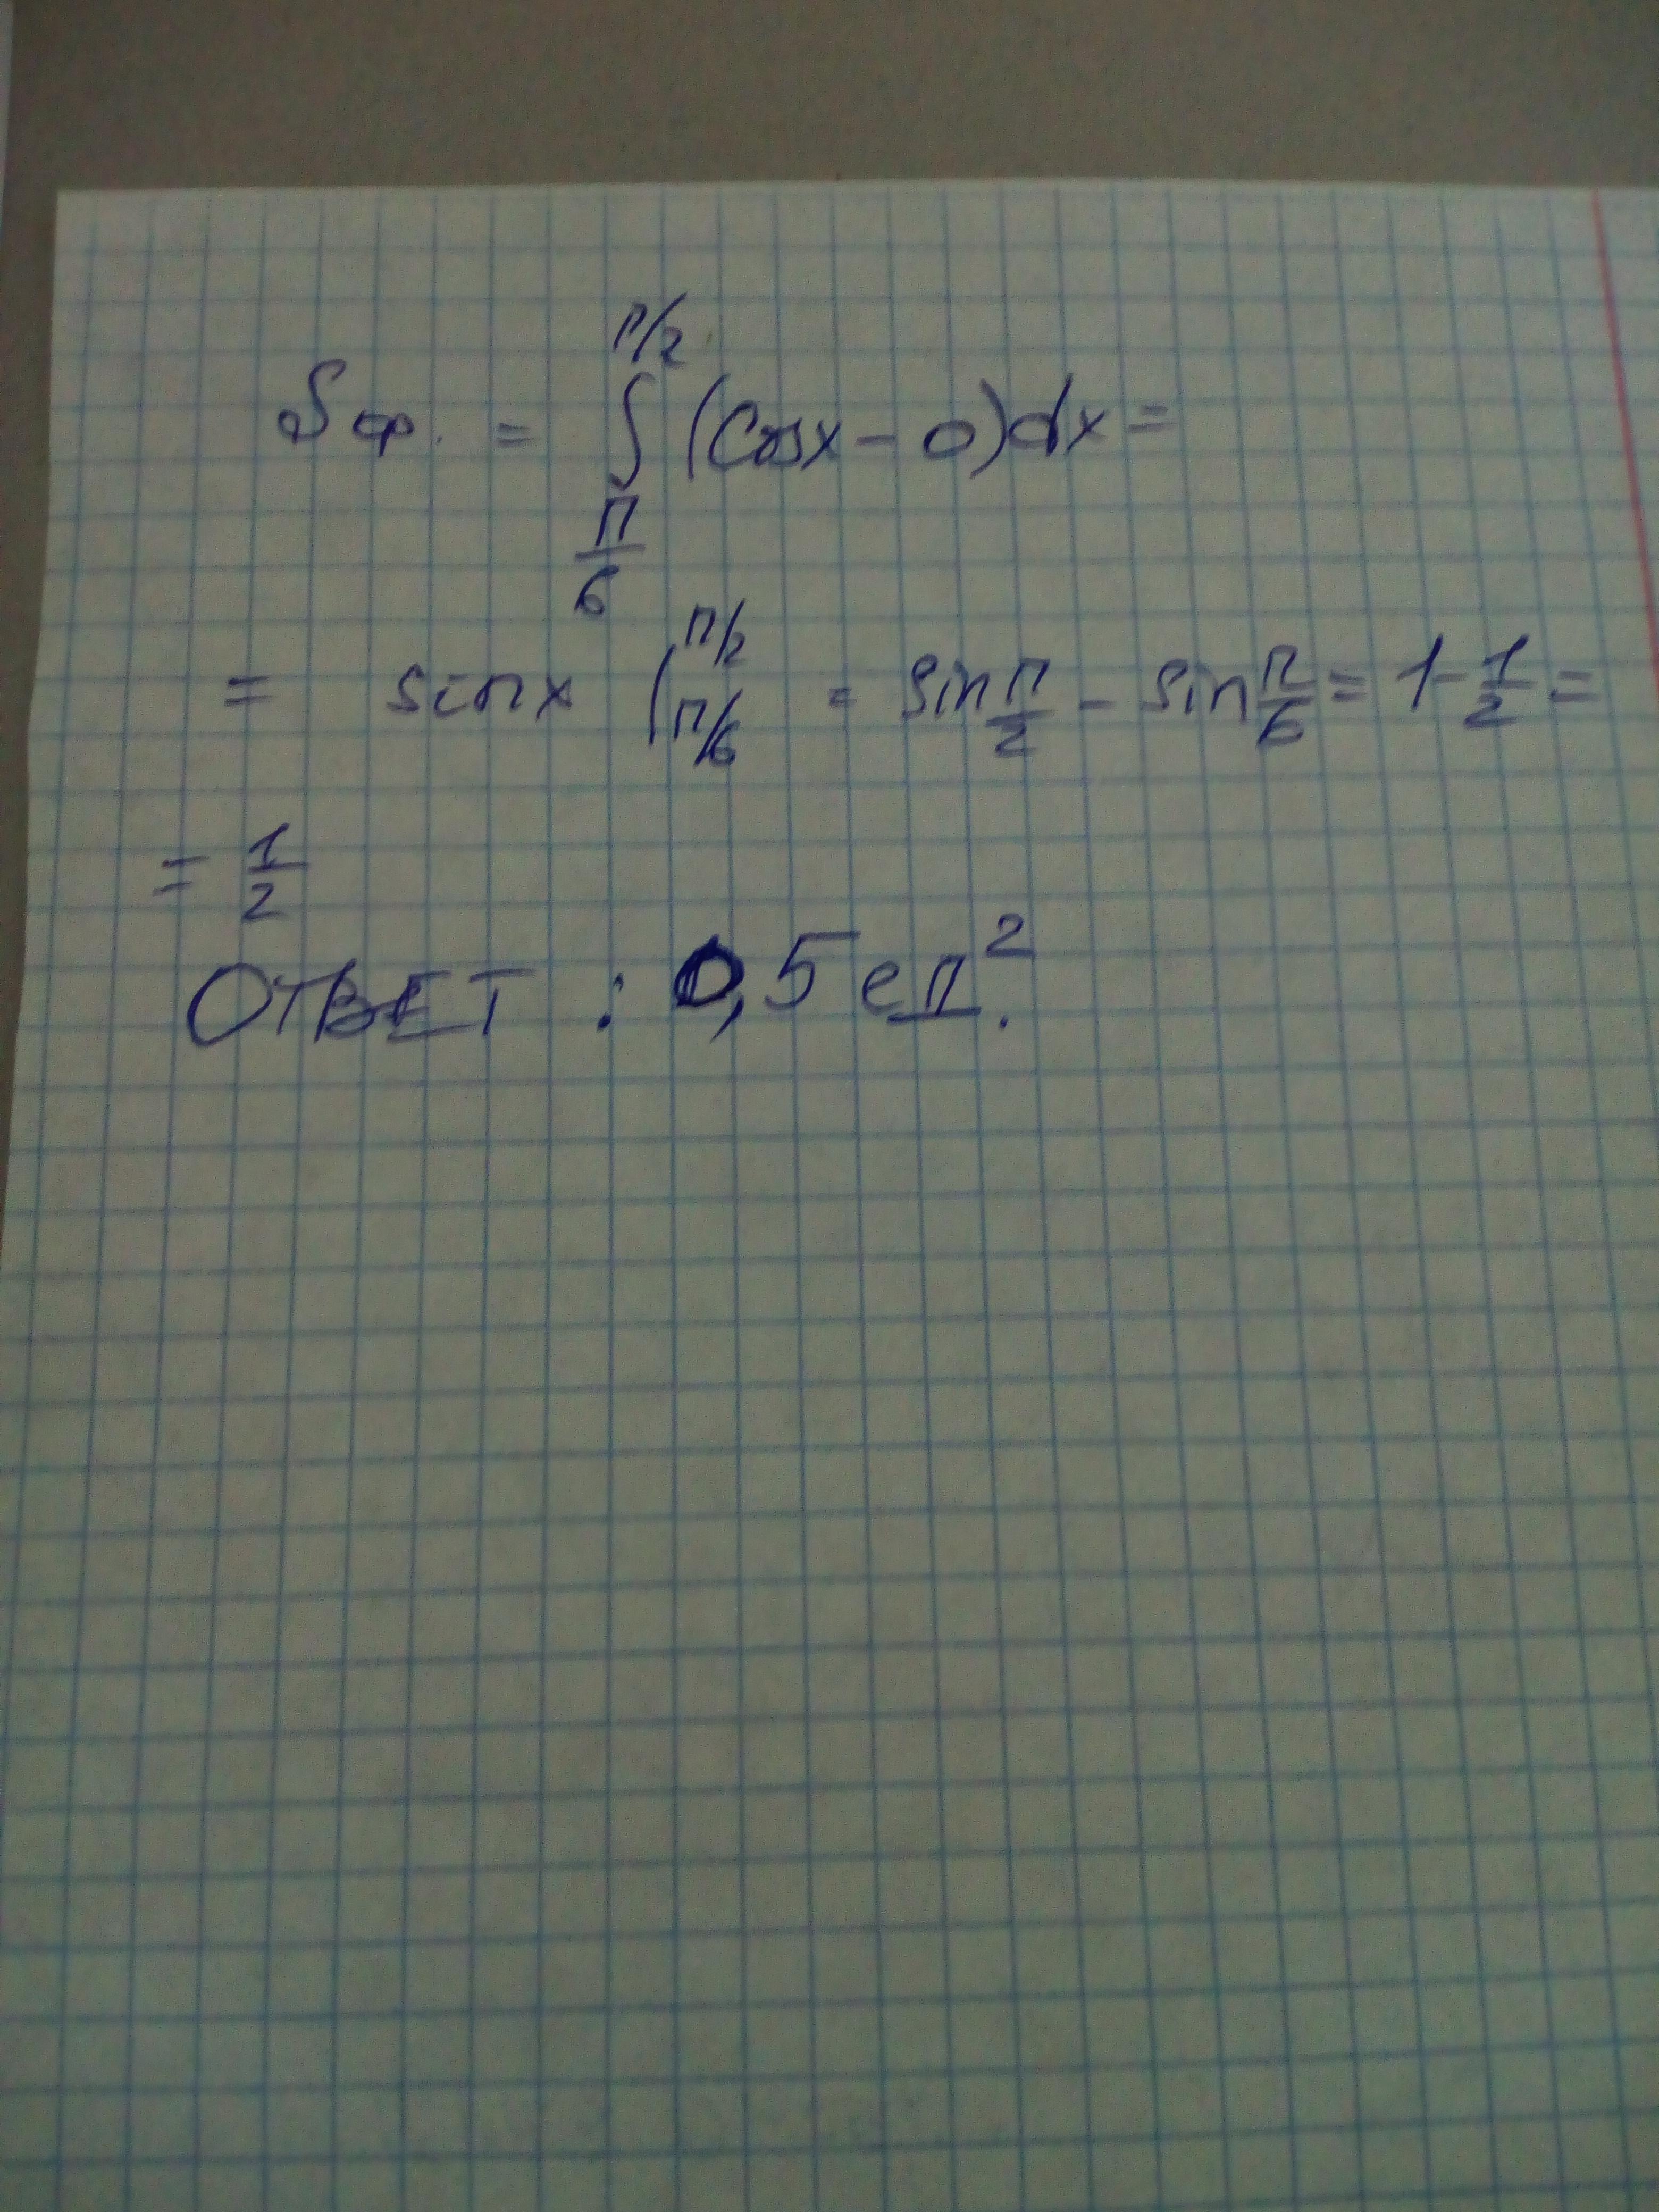 Sф. = ∫_{π/6}^{π/2} (Cosx - 0)dx =
= sinx |_{π/6}^{π/2} = sin π/2 - sin π/6 = 1 - 1/2 =
= 1/2
ОТВЕТ : 0,5 ед².